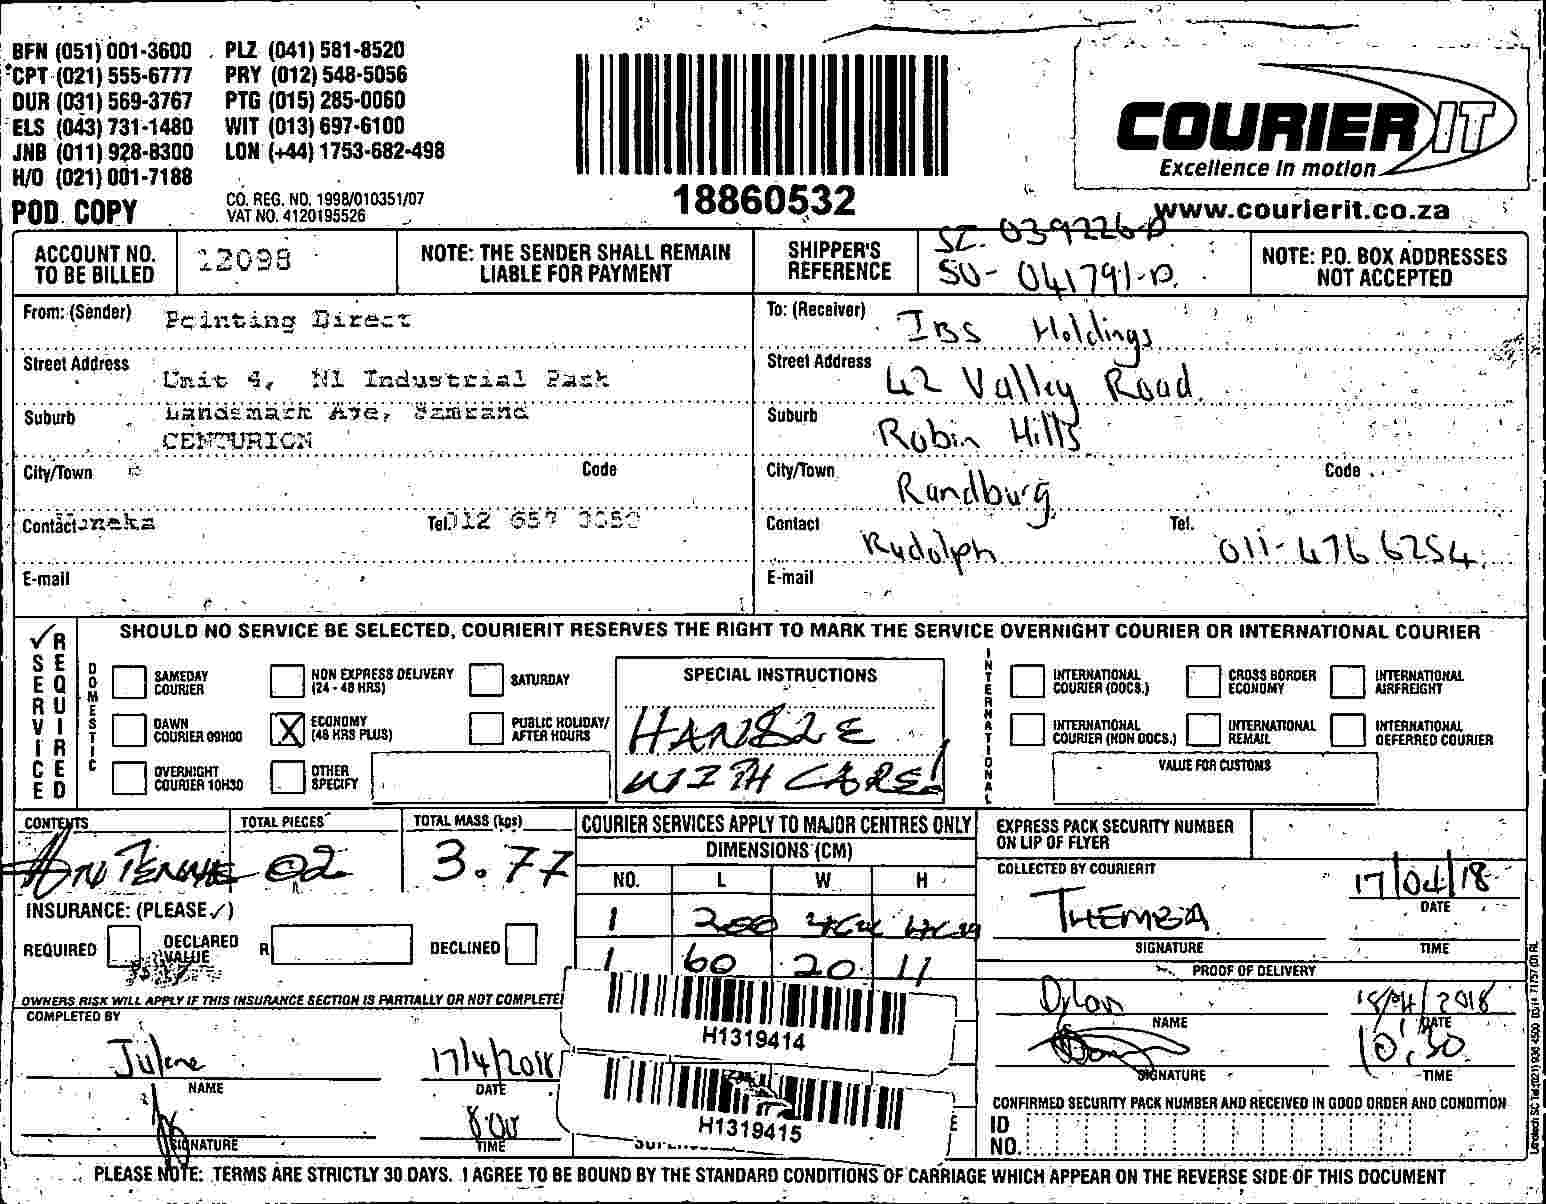 BFN (051) 001-3600 PLZ (041) 581-8520
CPT (021) 555-6777 PRY (012) 548-5056
DUR (031) 569-3767 PTG (015) 285-0060
ELS (043) 731-1480 WIT (013) 697-6100
JNB (011) 928-8300 LON (+44) 1753-682-498
H/O (021) 001-7188
POD COPY
CO. REG. NO. 1998/010351/07
VAT NO. 4120195526
18860532
COURIER IT
Excellence in motion
www.courierit.co.za
ACCOUNT NO. TO BE BILLED 12098
NOTE: THE SENDER SHALL REMAIN LIABLE FOR PAYMENT
SHIPPER'S REFERENCE
SI. 039226-D
SO- 041791-D.
NOTE: P.O. BOX ADDRESSES NOT ACCEPTED
From: (Sender) Pointing Direct
Street Address Unit 4, N1 Industrial Park
Suburb Landsmark Ave, Samrand
CENTURION
City/Town Code
Contact Tel. 012 657
E-mail
To: (Receiver) IBS Holdings
Street Address 42 Valley Road
Suburb Robin Hills
City/Town Randburg Code
Contact Rudolph Tel. 011-476 6254
E-mail
SERVICE REQUIRED
SHOULD NO SERVICE BE SELECTED, COURIERIT RESERVES THE RIGHT TO MARK THE SERVICE OVERNIGHT COURIER OR INTERNATIONAL COURIER
DOMESTIC
SAMEDAY COURIER
NON EXPRESS DELIVERY (24 - 48 HRS)
SATURDAY
DAWN COURIER 09H00
X ECONOMY (48 HRS PLUS)
PUBLIC HOLIDAY/ AFTER HOURS
OVERNIGHT COURIER 10H30
OTHER SPECIFY
SPECIAL INSTRUCTIONS
HANDLE
WITH CARE!
INTERNATIONAL
INTERNATIONAL COURIER (DOCS.)
CROSS BORDER ECONOMY
INTERNATIONAL AIRFREIGHT
INTERNATIONAL COURIER (NON DOCS.)
INTERNATIONAL REMAIL
INTERNATIONAL DEFERRED COURIER
VALUE FOR CUSTOMS
CONTENTS
TOTAL PIECES 02
TOTAL MASS (kgs) 3.77
INSURANCE: (PLEASE ✓)
REQUIRED DECLARED VALUE R DECLINED
OWNERS RISK WILL APPLY IF THIS INSURANCE SECTION IS PARTIALLY OR NOT COMPLETE
COMPLETED BY
Julene 17/4/2018
NAME DATE
8:00
SIGNATURE TIME
COURIER SERVICES APPLY TO MAJOR CENTRES ONLY
DIMENSIONS (CM)
NO. L W H
1 200
1 60 20 11
H1319414
H1319415
EXPRESS PACK SECURITY NUMBER ON LIP OF FLYER
COLLECTED BY COURIERIT
THEMBA 17/04/18
DATE
SIGNATURE TIME
PROOF OF DELIVERY
Dylan 18/04/2018
NAME DATE
10:30
SIGNATURE TIME
CONFIRMED SECURITY PACK NUMBER AND RECEIVED IN GOOD ORDER AND CONDITION
ID NO.
PLEASE NOTE: TERMS ARE STRICTLY 30 DAYS. I AGREE TO BE BOUND BY THE STANDARD CONDITIONS OF CARRIAGE WHICH APPEAR ON THE REVERSE SIDE OF THIS DOCUMENT